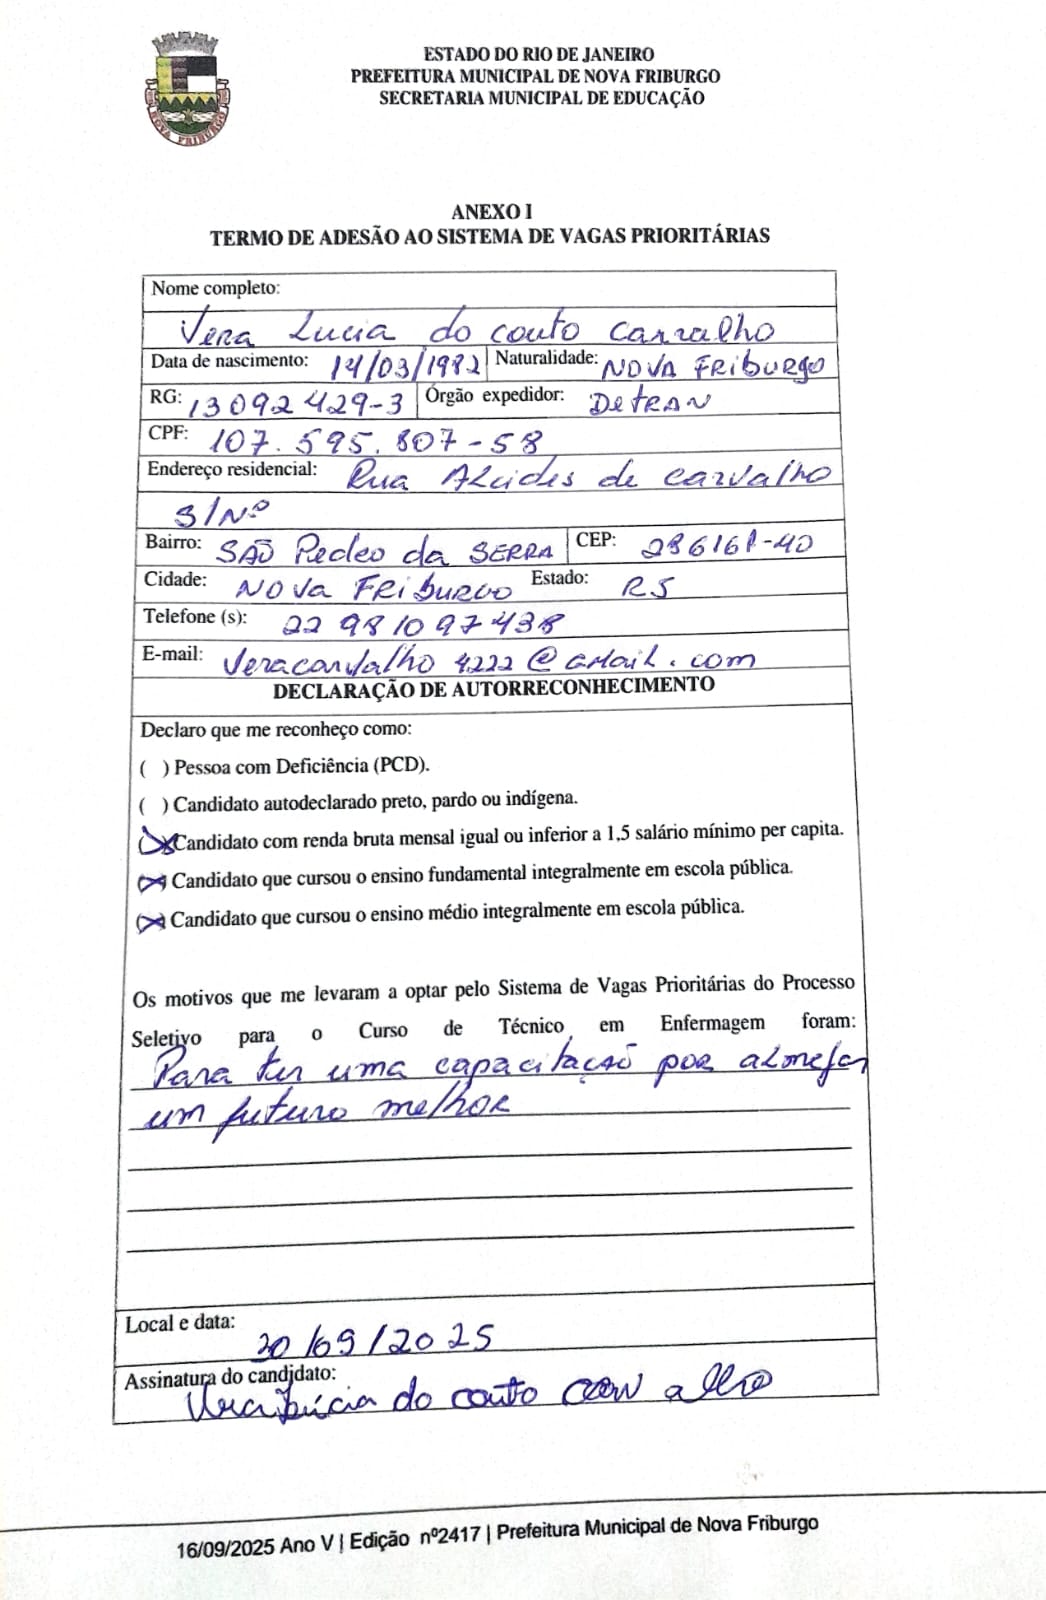 ESTADO DO RIO DE JANEIRO
PREFEITURA MUNICIPAL DE NOVA FRIBURGO
SECRETARIA MUNICIPAL DE EDUCAÇÃO
NOVA FRIBURGO
ANEXO I
TERMO DE ADESÃO AO SISTEMA DE VAGAS PRIORITÁRIAS
Nome completo:
Vera Lucia do couto carvalho
Data de nascimento: 14/03/1982 Naturalidade: NOVA FRiburgo
RG: 13092429-3 Órgão expedidor: DeTRAN
CPF: 107.595.807-58
Endereço residencial: Rua Alcides de carvalho
S/Nº
Bairro: SAÕ Pedro da SERRA CEP: 286161-40
Cidade: NOVa FRiburgo Estado: RJ
Telefone (s): 22 981097438
E-mail: Veracarvalho4222@GMail.com
DECLARAÇÃO DE AUTORRECONHECIMENTO
Declaro que me reconheço como:
( ) Pessoa com Deficiência (PCD).
( ) Candidato autodeclarado preto, pardo ou indígena.
(X) Candidato com renda bruta mensal igual ou inferior a 1,5 salário mínimo per capita.
(X) Candidato que cursou o ensino fundamental integralmente em escola pública.
(X) Candidato que cursou o ensino médio integralmente em escola pública.
Os motivos que me levaram a optar pelo Sistema de Vagas Prioritárias do Processo
Seletivo para o Curso de Técnico em Enfermagem foram:
Para ter uma capacitação por almejar
um futuro melhor
Local e data: 20/09/2025
Assinatura do candidato:
Vera Lúcia do couto carvalho
16/09/2025 Ano V | Edição nº2417 | Prefeitura Municipal de Nova Friburgo